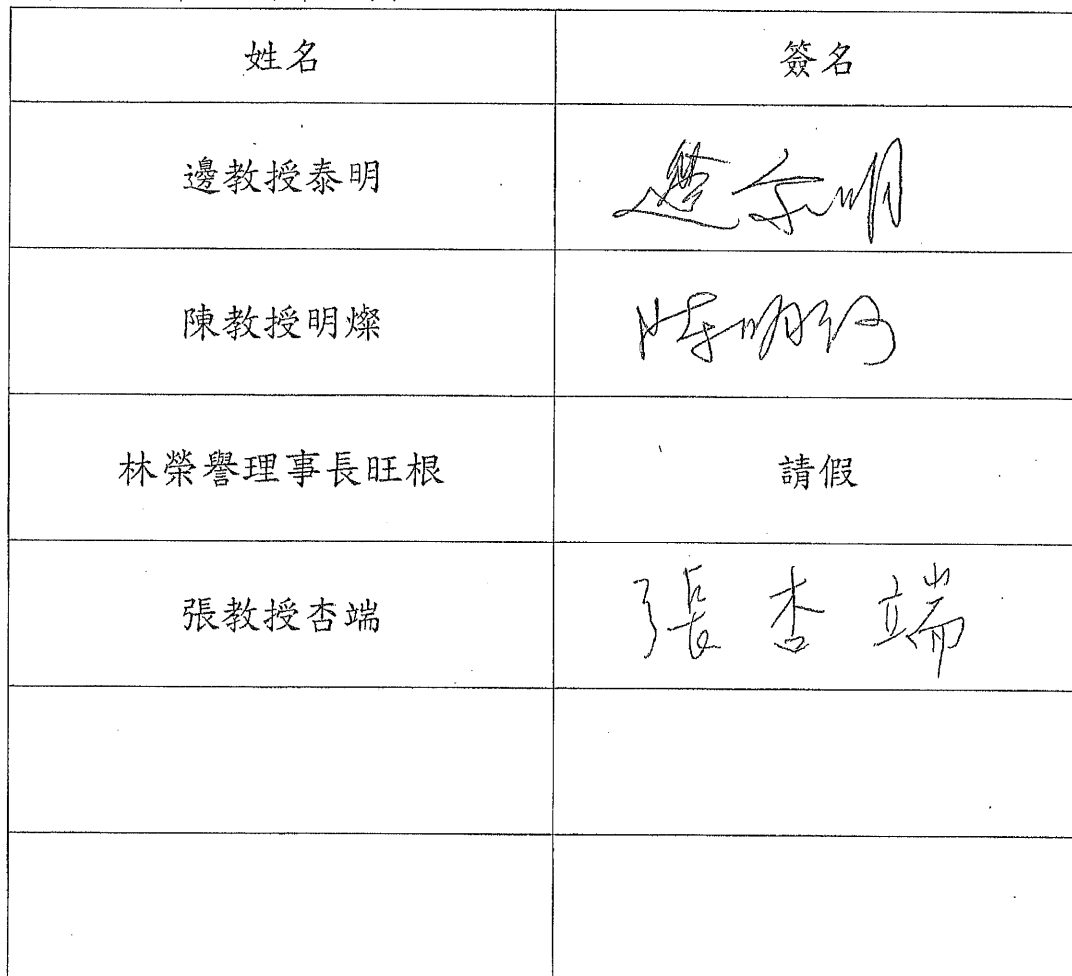 姓名 簽名
邊教授泰明 邊泰明
陳教授明燦 陳明燦
林榮譽理事長旺根 請假
張教授杏端 張杏端